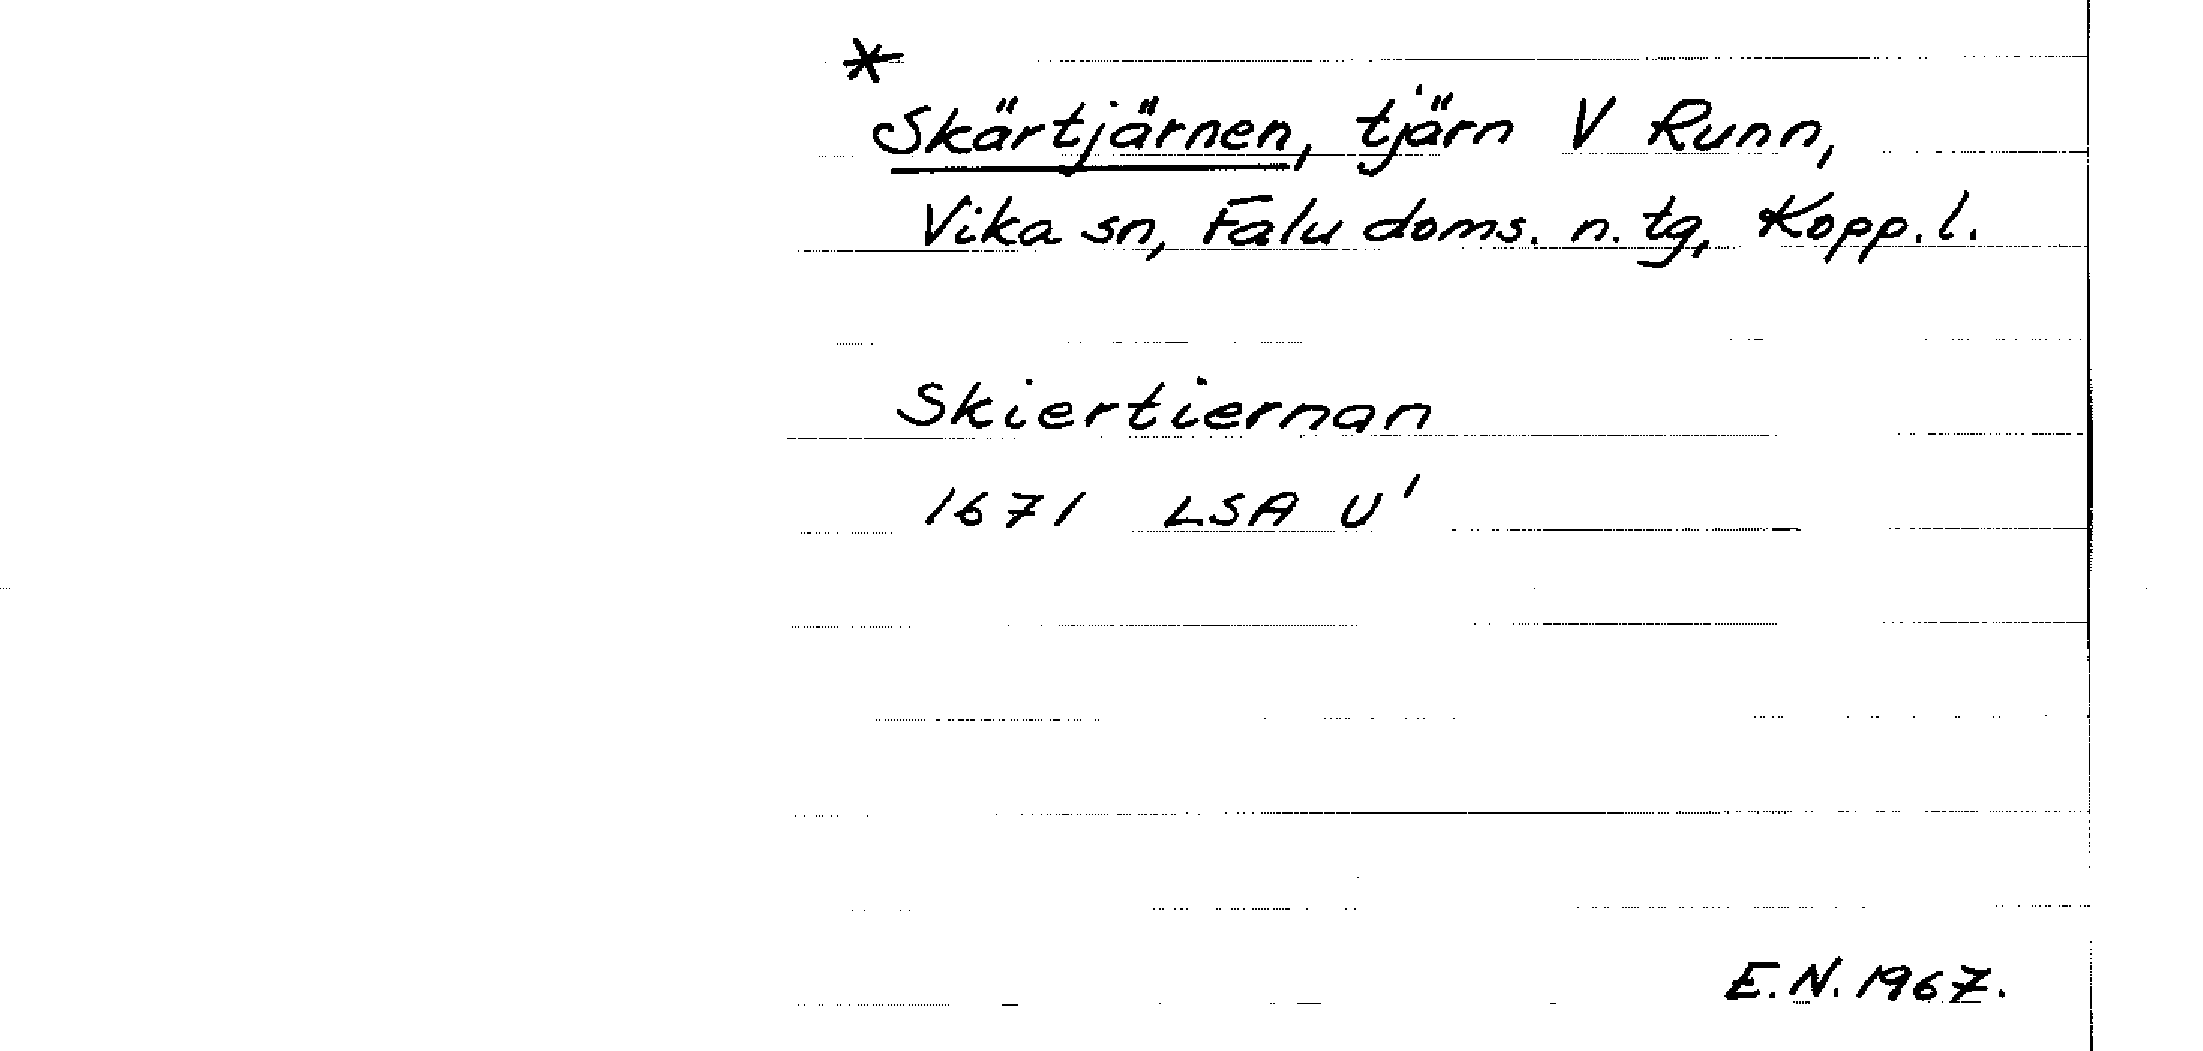 *
Skärtjärnen, tjärn V Runn,
Vika sn, Falu doms. n. tg, Kopp. l.
Skiertiernan
1671 LSA U'
E.N. 1967.